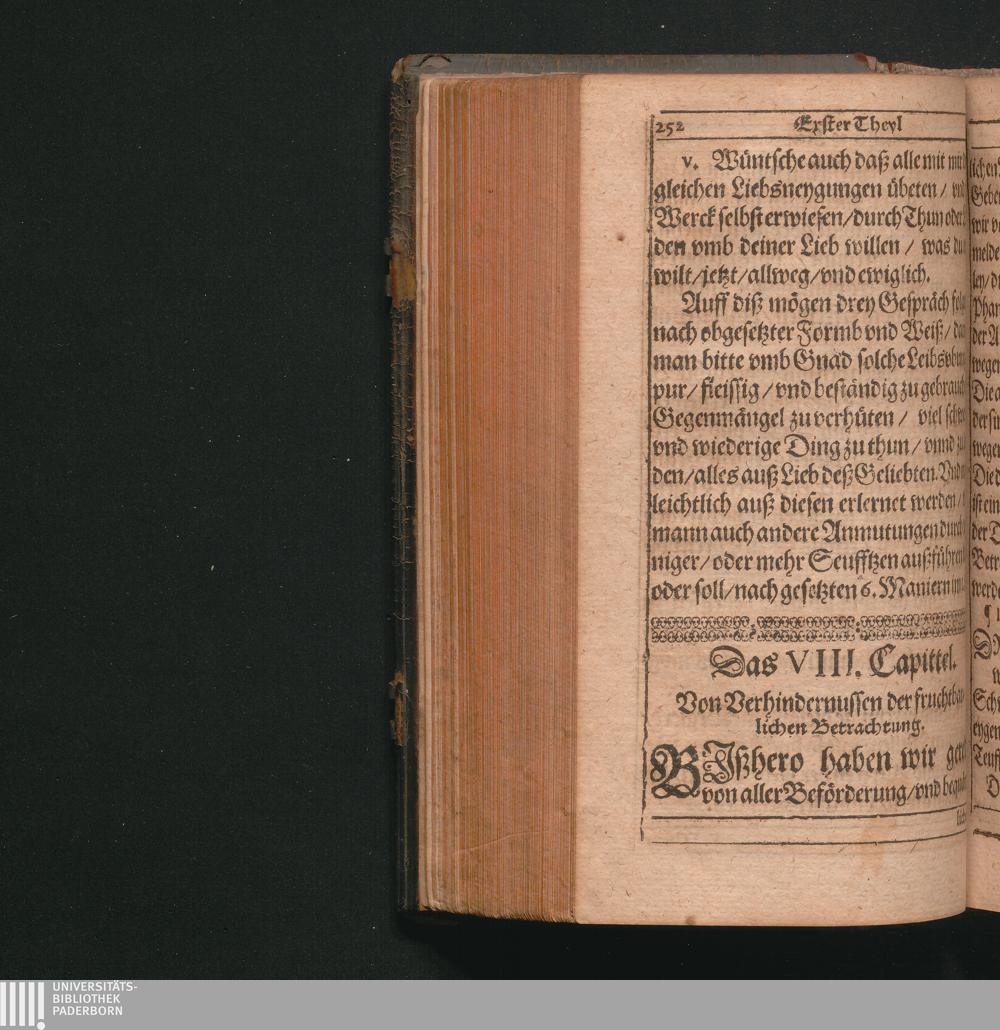 252 Erster Theyl
v. Wüntsche auch daß alle mit mir
gleichen Liebsneygungen übeten / vnd
Werck selbst erwiesen / durch Thun oder
den vmb deiner Lieb willen / was du
wilt / jetzt / allweg / vnd ewiglich.
Auff diß mögen drey Gespräch
nach obgesetzter Formb vnd Weiß /
man bitte vmb Gnad solche Leibsübun
pur / fleissig / vnd beständig zu gebrauch
Gegenmängel zu verhüten / viel
vnd wiederige Ding zu thun / vnnd
den / alles auß Lieb deß Geliebten. Vnd
leichtlich auß diesen erlernet werden /
mann auch andere Anmutungen durch
niger / oder mehr Seufftzen außführen
oder soll / nach gesetzten 6. Maniern
Das VIII. Capittel.
Von Verhindernussen der fruchtbar
lichen Betrachtung.
BIßhero haben wir
von aller Beförderung / vnd
lichen
Gebe
wir
melde
ley /
Phan
der A
wegen
Die
der
wegen
Die
ist ein
der
Betr
werde
Sch
eygen
Teuff
UNIVERSITÄTS-
BIBLIOTHEK
PADERBORN